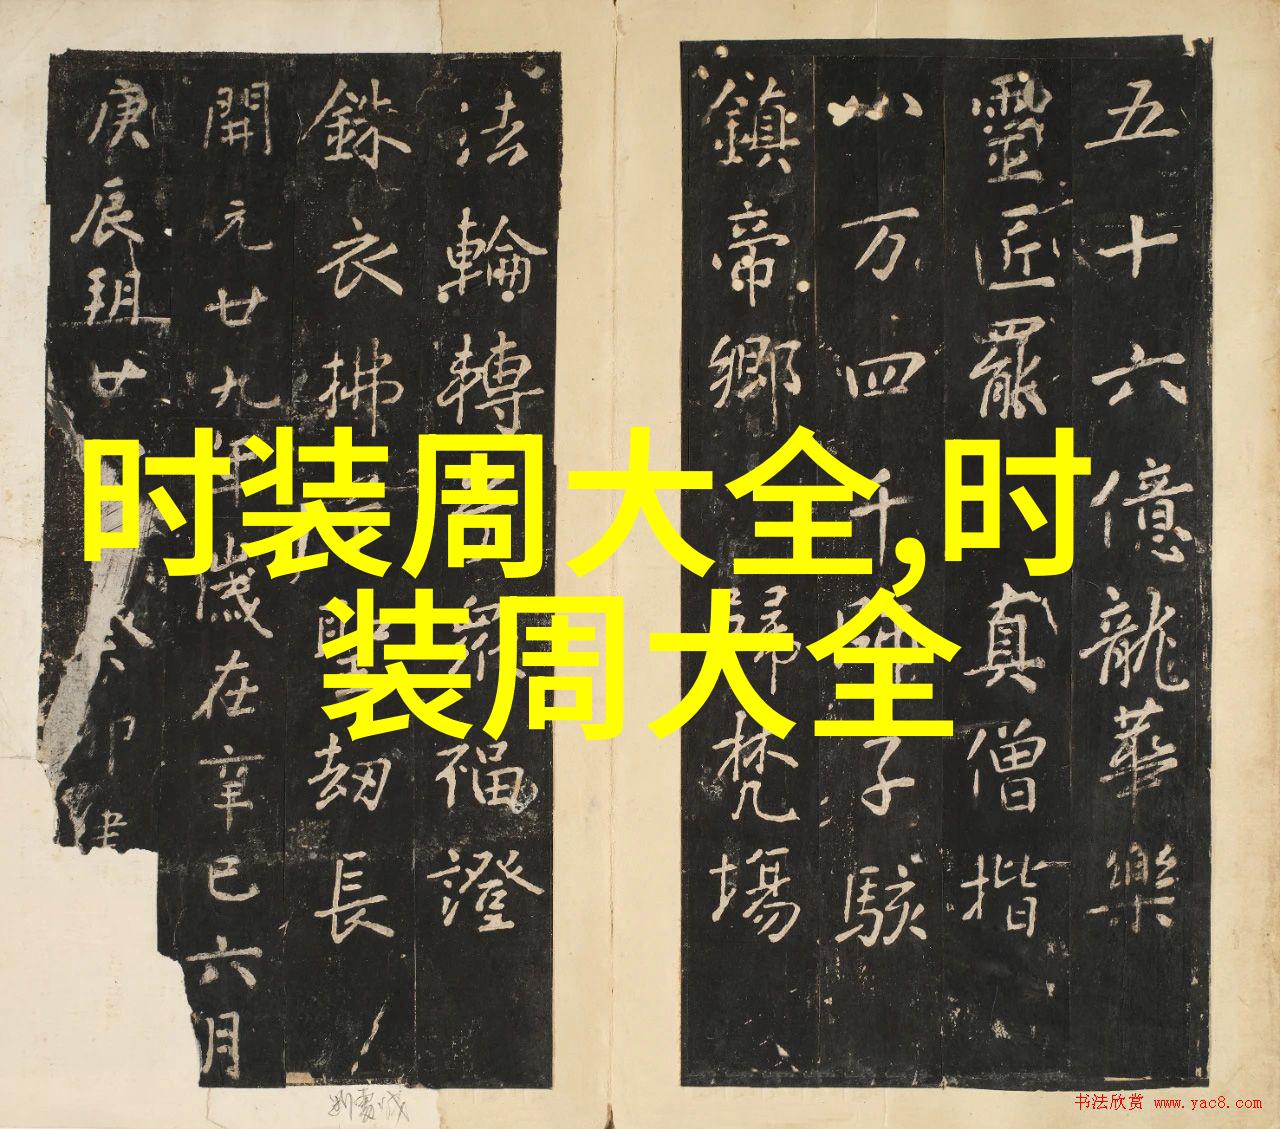 五十六億龍華樂
靈匠罷 真僧揩
八万四千 子駭
鎮帝鄉 歸梵場
法輪轉 福證
銖衣拂 劫長
開元廿九年歲在辛巳六月
庚辰朔廿 癸卯建
时装周大全,时
装周大全
书法欣赏 www.yac8.com